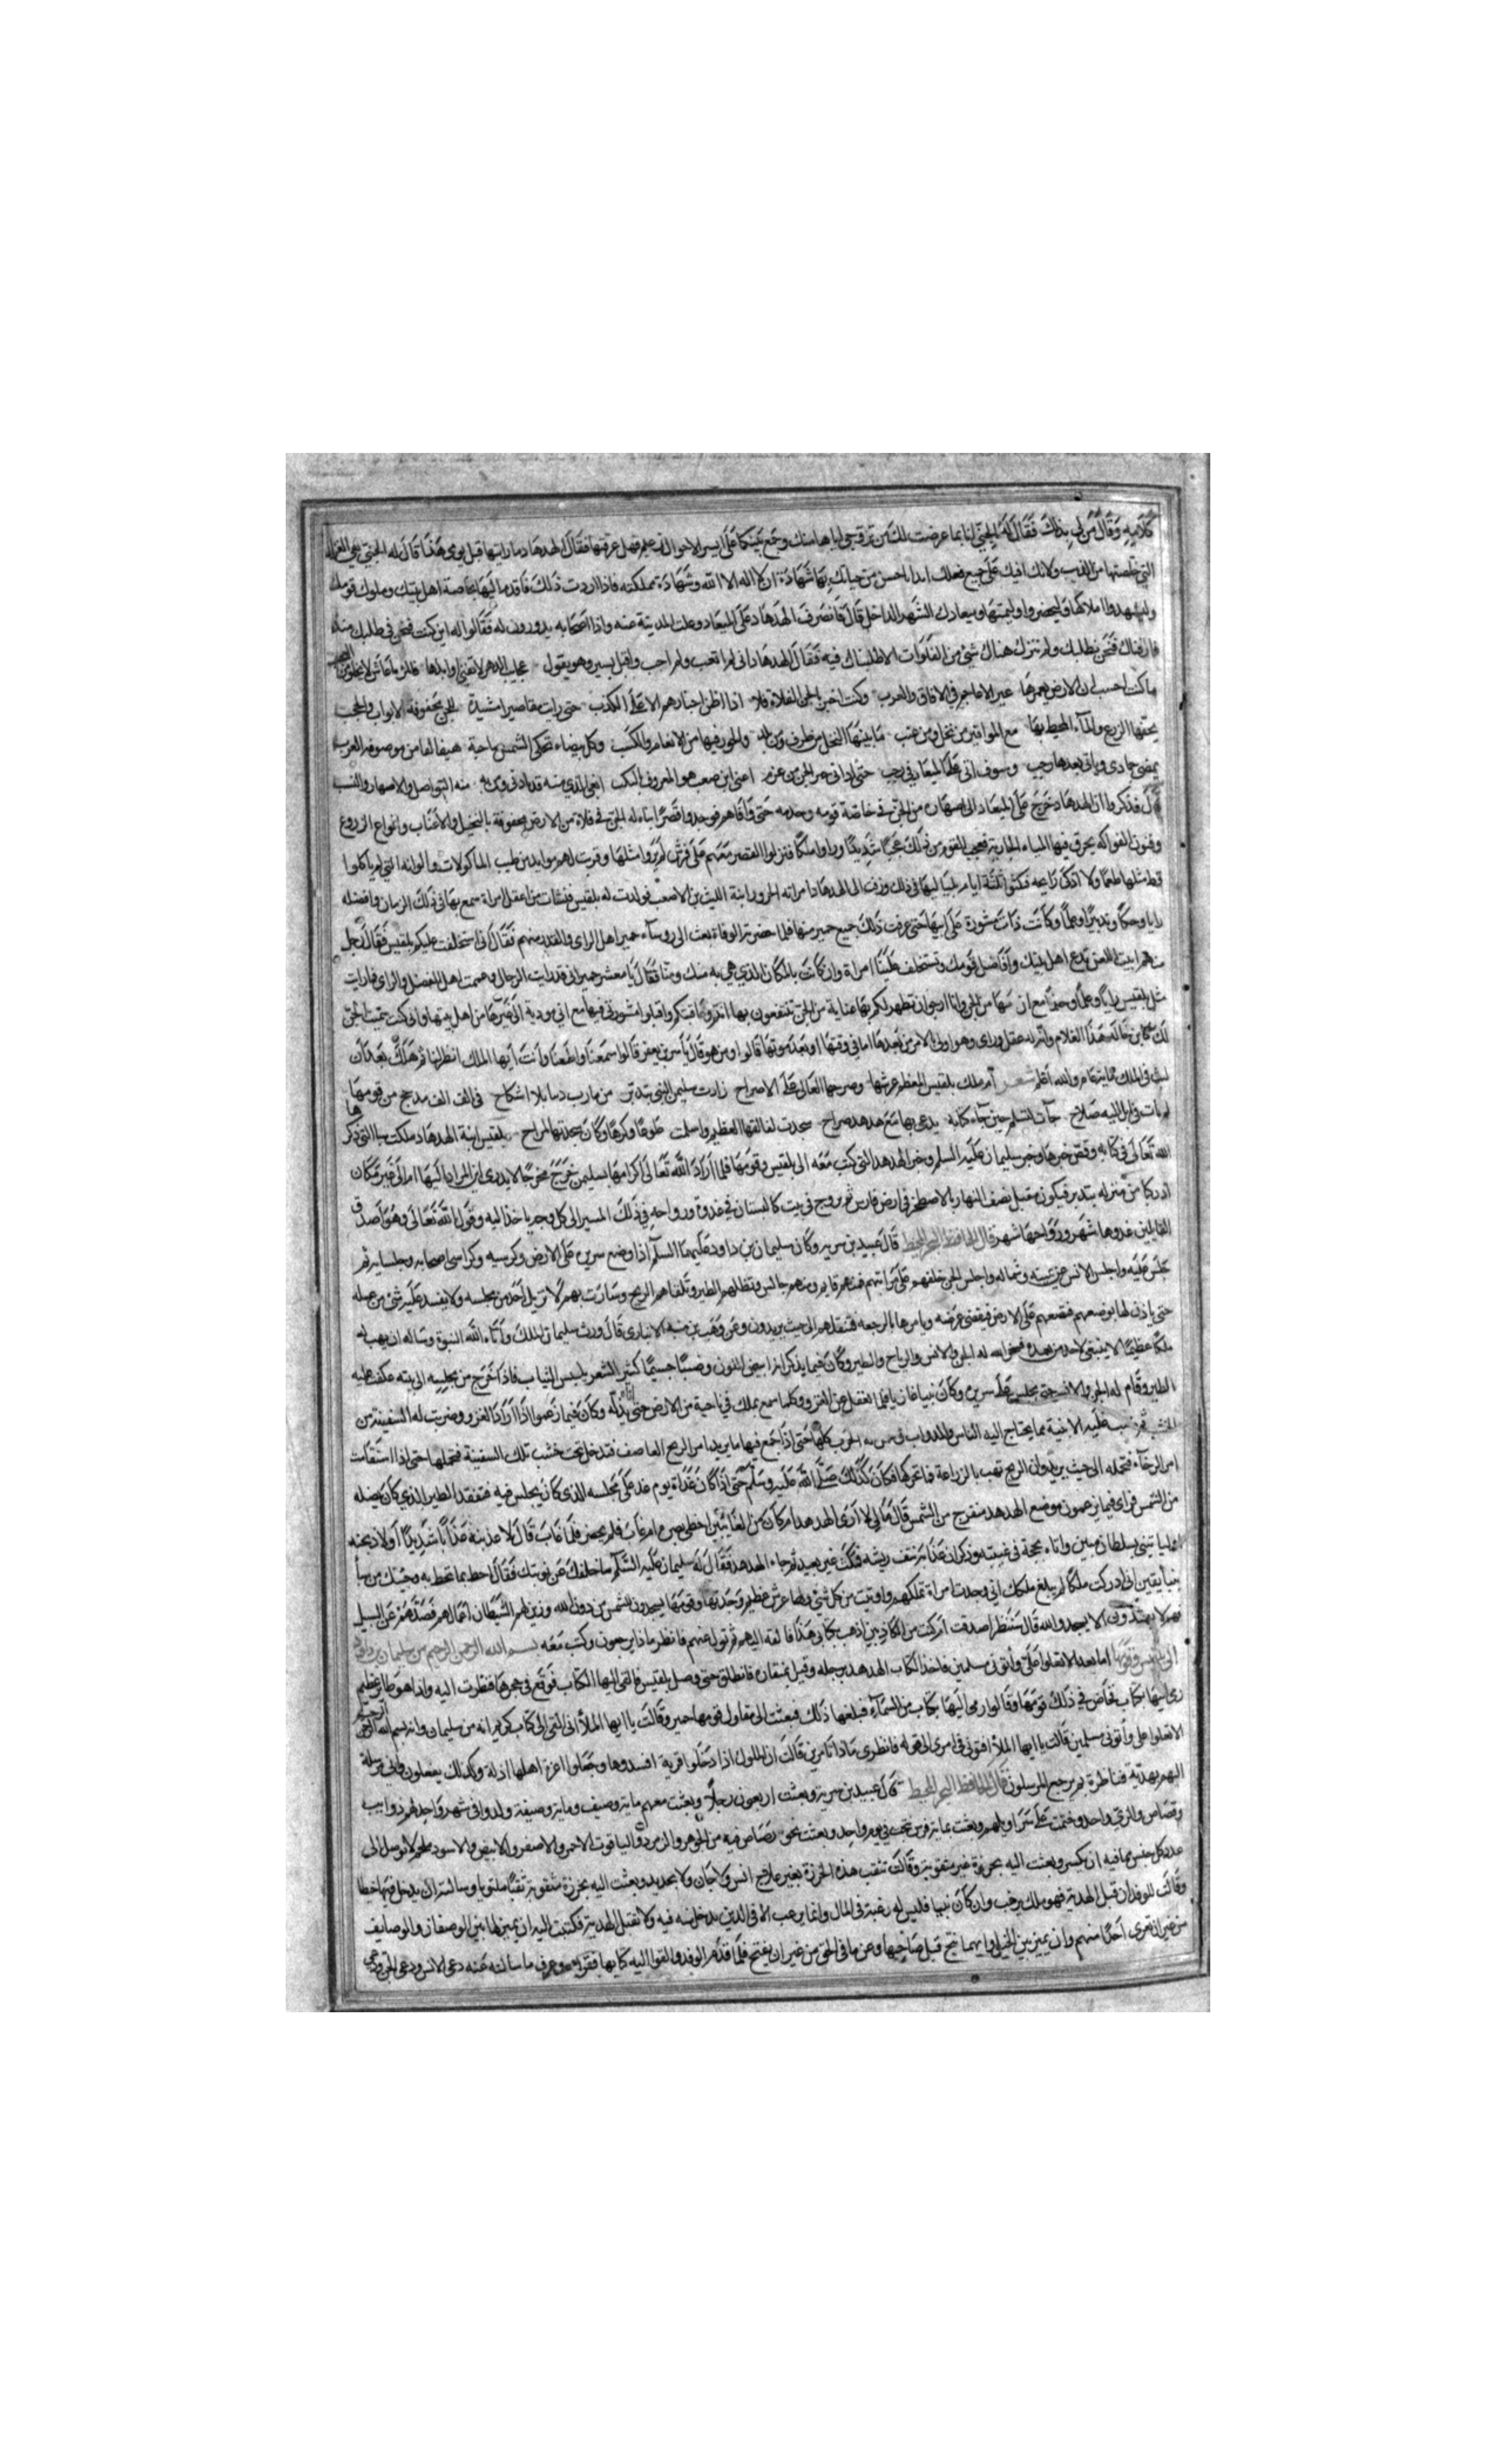 كلامه وقال من لي بذلك فقال له الجني انا بما عرضت لك من تزويجي اياها منك وجمع بينكما على ايسر الاحوال فقال الهدهاد ما رايتها قبل يومي هذا قال له الجني هي الغزالة
التي خلصتها من الذيب ولانك افيك على جميع فعلك ابدا باحسن من حياتك بها شهادة ان لا اله الا الله وشهادة مملكته فاذا اردت ذلك فاقدم اليها بخاصة اهل بيتك وملوك قومك
وليشهدوا املاكها وليحضروا وليمتها وميعادك الشهر الداخل قال فانصرف الهدهاد على الميعاد وعلت المدينة عنه واذا اصحابه يدورون له فقالوا له اين كنت فنحن في طلبك منذ
فارقناك فنحن نطلبك ولم نترك هناك شئ من الفلوات الا طلبناك فيه فقال الهدهاد اني لم اتعب ولم احب واقبل يسير وهو يقول عجايب الدهر لا تفنى اوابدها
ما كنت احسب ان الارض يعمرها غير الاعاجم في الافاق والعرب وكنت اخبر بالجن الفلاة فلا اذا اظن اخبارهم الا على الكذب حتى رايت مقاصير مشيدة للجن محفوفة الابواب والحجب
يحفها الزرع والماء المحيط بها مع المواقير من نخل ومن عنب ما بينها النخل من طرف ومن تلد والحور فيها من الانعام والكسب وكل بيضاء تحكي الشمس ضاحية هيفا لفا من موصوفة العرب
يمضي جمادى وياتي بعدها رجب وسوف اتي على الميعاد في رجب حتى اوافي خير الجن من عرم اعني ابن صعب هو المعروف النكب
قال فذكروا ان الهدهاد خرج على الميعاد الى اصهاره من الجن في خاصة قومه وخدمه حتى وافاهم فوجدوا قصرا بناه له الجن في فلاة من الارض محفوفة بالنخيل والاعناب وانواع الزروع
وفنون الفواكه يخرق فيها المياه الجارية فعجب القوم من ذلك عجبا شديدا وراوا ملكا فنزلوا القصر معهم على فرش لم يروا مثلها وقربت لهم موايد من طيب الماكولات والوانه التي لم ياكلوا
قط مثلها طعما ولا اذكى رايحة فمكثوا ثلثة ايام بلياليها في ذلك وزفت الى الهدهاد امراته الحرور ابنة الليث بن الاصعب فولدت له بلقيس فنشات من اعقل امراة سمع بها في ذلك الزمان وافضله
رايا وحكما وتدبيرا وعلما وكانت ذات مشورة على ابيها حتى عرفت ذلك جميع حمير منها فلما حضرته الوفاة بعث الى روساء حمير اهل الراي والقدر منهم فقال اني استخلفت عليكم بلقيس فقال رجل
منهم ابيت اللعن تدع اهل بيتك وافاضل قومك وتستخلف علينا امراة وان كانت بالمكان الذي هي به منك ومنا فقال يا معشر حمير اني قد رايت الرجال وعجمت اهل الفضل والراي فما رايت
مثل بلقيس رايا وعلما وحزما مع ان امها من الجن وانا ارجو ان تظهر لكم بها عناية من الجن تنتفعون بها
لك كما بن خالد هذا الغلام وانه له عقل وراي وهو اولى بالامر من بعدها اما في وقتها او بعد موتها قالوا ومن هو قال ياسر بن يعفر قالوا سمعنا واطعنا وانت ايها الملك انظر لنا ثم هلك بعد ان
لبث في الملك مماية عام والله اعلم شعر ام ملك بلقيس المعظم عرشها وصرحها العالي على الاصراح زارت سليمن النبي بتدمر من مارب دينا بلا اشكاح في الف الف مدجج من قومها
لم يات في ابل اليه صلاح جات لتسلم حين جاء كتابه يدعى بها مع هدهد صراح سجدت لخالقها العظيم واسلمت طوعا وكرها وكان سجدتها المراح بلقيس ابنة الهدهاد ملكت سبا التي ذكر
الله تعالى في كتابه وقص خبرها وخبر سليمان عليه السلم وخبر الهدهد التي كتب معه الى بلقيس وقومها فلما اراد الله تعالى اكرامها بسليمن خرج مخرجا لا يدرى اين المراد اليها ام الى غير مكان
القايلين غدوها شهر ورواحها شهر قال الحافظ البحر المحيط قال عبيد بن سرية وكان سليمان بن داود عليهما السلم اذا وضع سريره على الارض وكرسيه وكراسي اصحابه وجلسايه ثم
جلس عليه واجلس الانس عن يمينه وشماله واجلس الجن خلفهم على مراتبهم فمنهم قايم ومنهم جالس وتظلهم الطير وتلقاهم الريح وسارت بهم لا تزيل احد من مجلسه ولا يفسد عليه شئ من عمله
حتى ياذن لها بوضعهم فتضعهم على الارض فيقضي غرضه ويامرها بالرجعة فتنقلهم الى حيث يريدون وعن وهب بن منبه الانباري قال ورث سليمان الملك واتاه الله النبوة وساله ان يهب له
ملكا عظيما لا ينبغي لاحد من بعده فسخر الله له الجن والانس والرياح والطير وكان فيما يذكر انه ابيض اللون وضيا جسيما كثير الشعر يلبس البياض من الثياب فاذا خرج من مجلسه الى بيته عكفت عليه
الطير وقام له الجن والانس حتى يجلس على سريره وكان نبيا غازيا قلما يغفل عن الغزو وكلما سمع بملك في ناحية من الارض حتى يذله وكان فيما زعموا اذا اراد الغزو وضربت له السفينة من
الخشب ثم نصب عليه الابنية بما يحتاج اليه الناس والدواب حتى اذا جمع فيها ما يريد امر الريح العاصف فتدخل تحت خشب تلك السفينة فتحملها حتى اذا استقلت
امر الرخاء فتحمله الى حيث يريد وان الريح تهب بالزراعة فما تحركها فكان كذلك صلى الله عليه وسلم حتى اذا كان غداة يوم غد على مجلسه الذي كان يجلس فيه فتفقد الطير الذي كان يضله
من الشمس فراى فيما يزعمون موضع الهدهد منفرج من الشمس قال مالي لا ارى الهدهد ام كان من الغايبين اخطاه بصري ام غاب فلم يحضر فلما غاب قال لاعذبنه عذابا شديدا او لاذبحنه
او لياتيني بسلطان مبين واتاه بحجة في غيبته وذكر ان عذابه نتف ريشه فمكث غير بعيد ثم جاء الهدهد فقال له سليمان عليه السلم ما خلفك عن نوبتك فقال احطت بما لم تحط به وجيتك من سبا
بنبا يقين اني ادركت ملكا لم يبلغ ملكك اني وجدت امراة تملكهم واوتيت من كل شئ ولها عرش عظيم وجدتها وقومها يسجدون للشمس من دون الله وزين لهم الشيطان اعمالهم فصدهم عن السبيل
فهم لا يهتدون الا يسجدوا لله قال سننظر اصدقت ام كنت من الكاذبين اذهب بكتابي هذا فالقه اليهم ثم تول عنهم فانظر ماذا يرجعون وكتب معه بسم الله الرحمن الرحيم من سليمان بن داود
الى بلقيس وقومها اما بعد الا تعلوا علي واتوني مسلمين فاخذ الكتاب الهدهد برجله وقيل بمنقاره فانطلق حتى وصل بلقيس فالقى اليها الكتاب فوقع في حجرها فنظرت اليه واذا هو طاير عظيم
رمى اليها بكتاب فخاض في ذلك قومها وقالوا رمى اليها بكتاب من السماء فبلغها ذلك فبعثت الى مقاول قومها حمير وقالت يا ايها الملا اني القي الي كتاب كريم انه من سليمان وانه بسم الله الرحمن الرحيم
الا تعلوا علي واتوني مسلمين قالت يا ايها الملا افتوني في امري الى قوله فانظري ماذا تامرين قالت ان الملوك اذا دخلوا قرية افسدوها وجعلوا اعزة اهلها اذلة وكذلك يفعلون واني مرسلة
اليهم بهدية فناظرة بم يرجع المرسلون قال الحافظ البحر المحيط قال عبيد بن سرية وبعثت اربعون رجلا وبعثت معهم ماية وصيف وماية وصيفة ولدوا في شهر واحد لهم ذوايب
وقصاص والزي واحد وختمت على سراويلهم وبعثت بماية فرس نتجت في يوم واحد وبعثت بحق رصاص فيه من الجوهر والزمرد والياقوت الاحمر والاصفر والابيض والاسود
عدد كل جنس بما فيه ان يكسر وبعثت اليه بخرزة غير مثقوبة وقالت تثقب هذه الخرزة بغير علاج انس ولا جان ولا بحديد وبعثت اليه بخرزة مثقوبة ثقبا ملتويا وسالته ان يدخل فيها خيطا
وقالت للوفد ان قبل الهدية فهو ملك يرغب وان كان نبيا فليس له رغبة في المال وانما يرغب الا في الدين يدخل فيه ولا تقبل الهدية فكتبت اليه ان يميز لها بين الوصفاء والوصايف
من غير ان تعرى احدا منهم وان يميز بين الخيل ايهما نتج قبل صاحبها وعن ما في الحق من غير ان يفتح فلما قدم الوفد والقوا اليه كتابها فقراه وعرف ما سالته عنه دعى الانس ودعى الجن ودعى